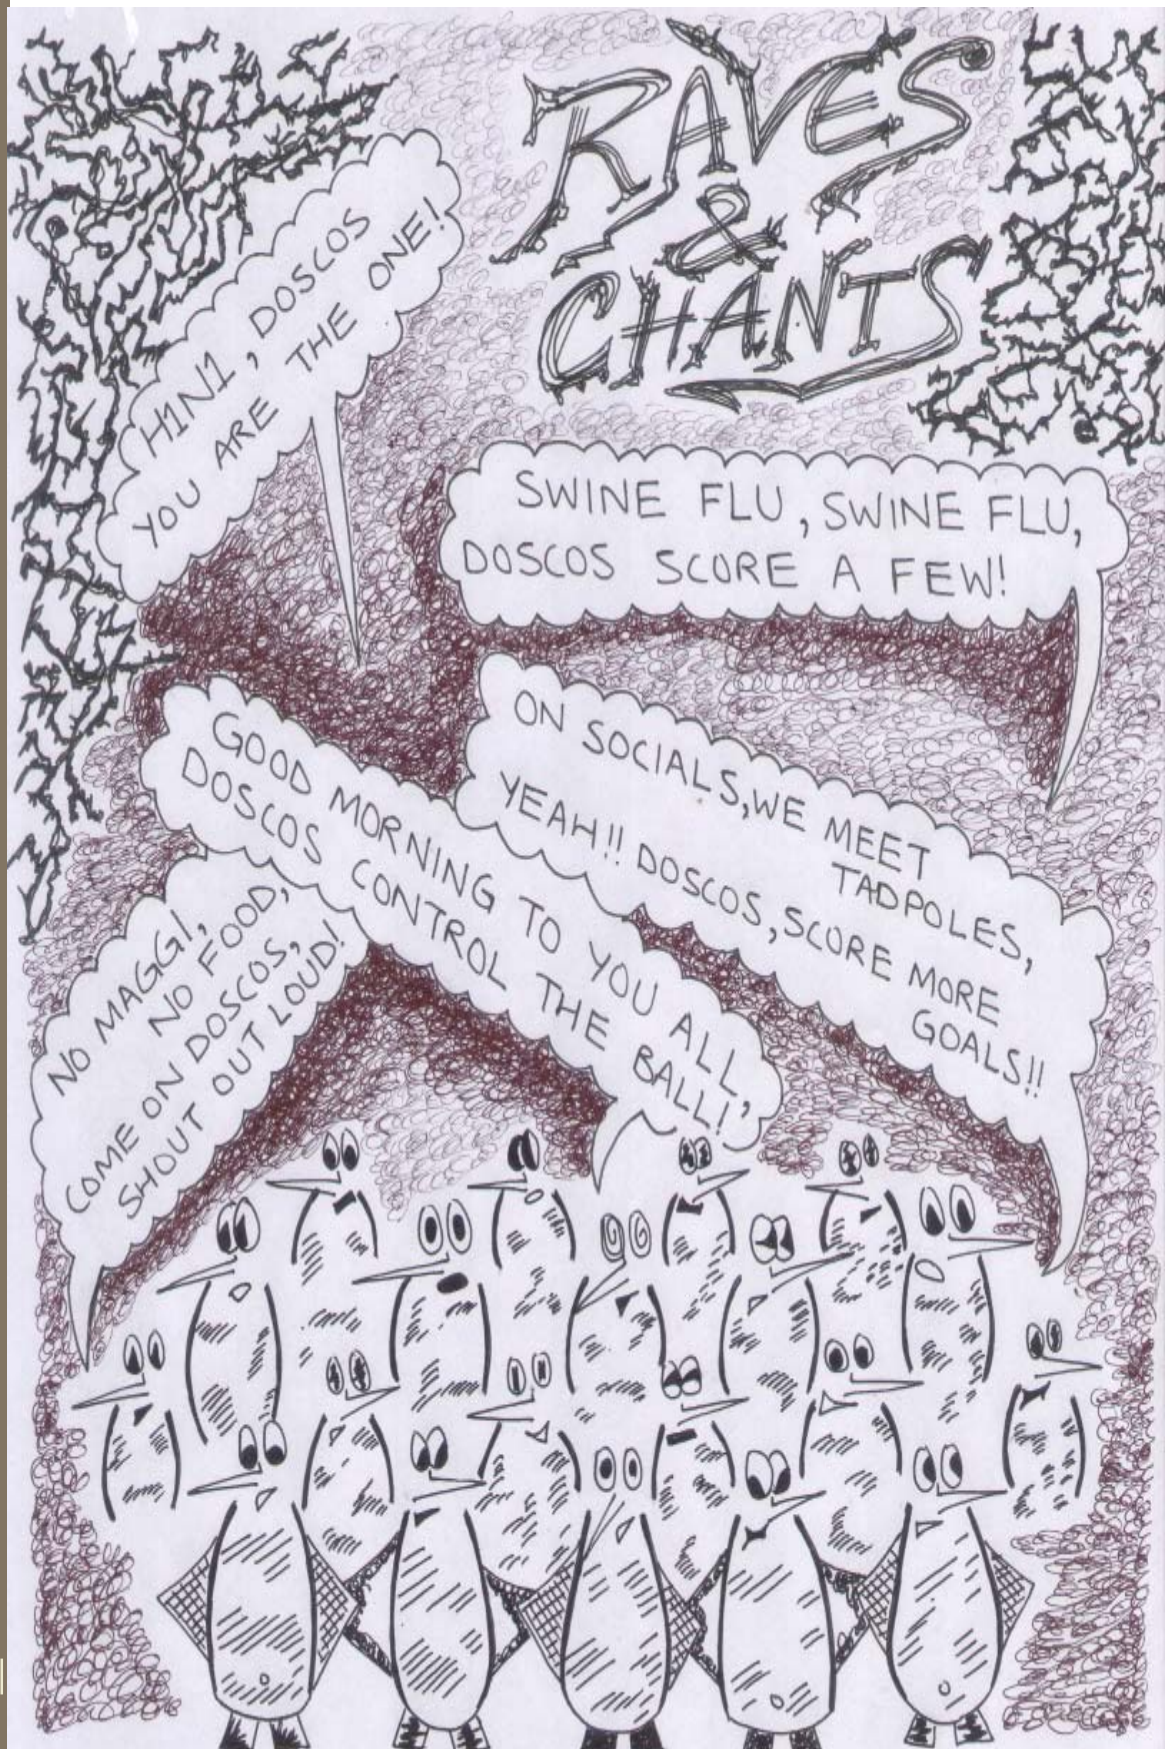 RAVES
&
CHANTS
H1N1, DOSCOS
YOU ARE THE ONE!
SWINE FLU, SWINE FLU,
DOSCOS SCORE A FEW!
ON SOCIALS, WE MEET
TADPOLES,
YEAH!! DOSCOS, SCORE MORE
GOALS!!
GOOD MORNING TO YOU ALL,
DOSCOS CONTROL THE BALL!
NO MAGGI,
NO FOOD,
COME ON DOSCOS,
SHOUT OUT LOUD!